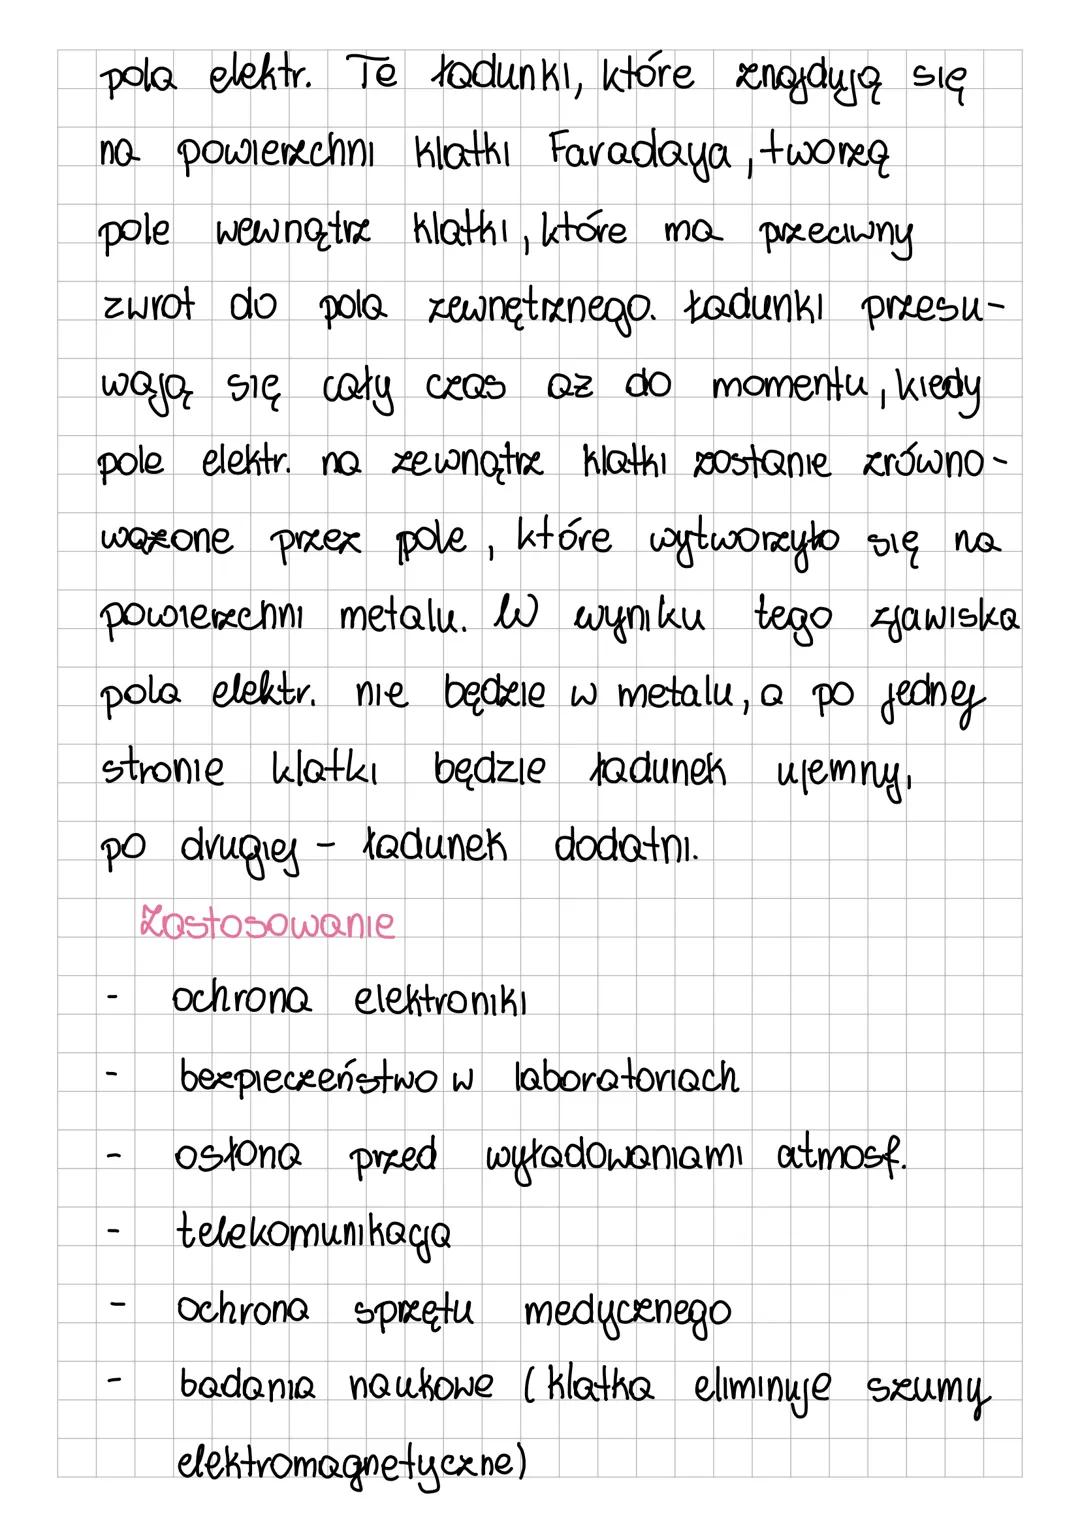 pola elektr. Te ładunki, które znajdują się
na powierzchni klatki Faradaya, tworzą
pole wewnątrz klatki, które ma przeciwny
zwrot do pola zewnętrznego. Ładunki przesu-
wają się cały czas aż do momentu, kiedy
pole elektr. na zewnątrz klatki zostanie zrówno-
ważone przez pole, które wytworzyło się na
powierzchni metalu. W wyniku tego zjawiska
pola elektr. nie będzie w metalu, a po jednej
stronie klatki będzie ładunek ujemny,
po drugiej - ładunek dodatni.
Zastosowanie
- ochrona elektroniki
- bezpieczeństwo w laboratoriach
- osłona przed wyładowaniami atmosf.
- telekomunikacja
- ochrona sprzętu medycznego
- badania naukowe (klatka eliminuje szumy
elektromagnetyczne)